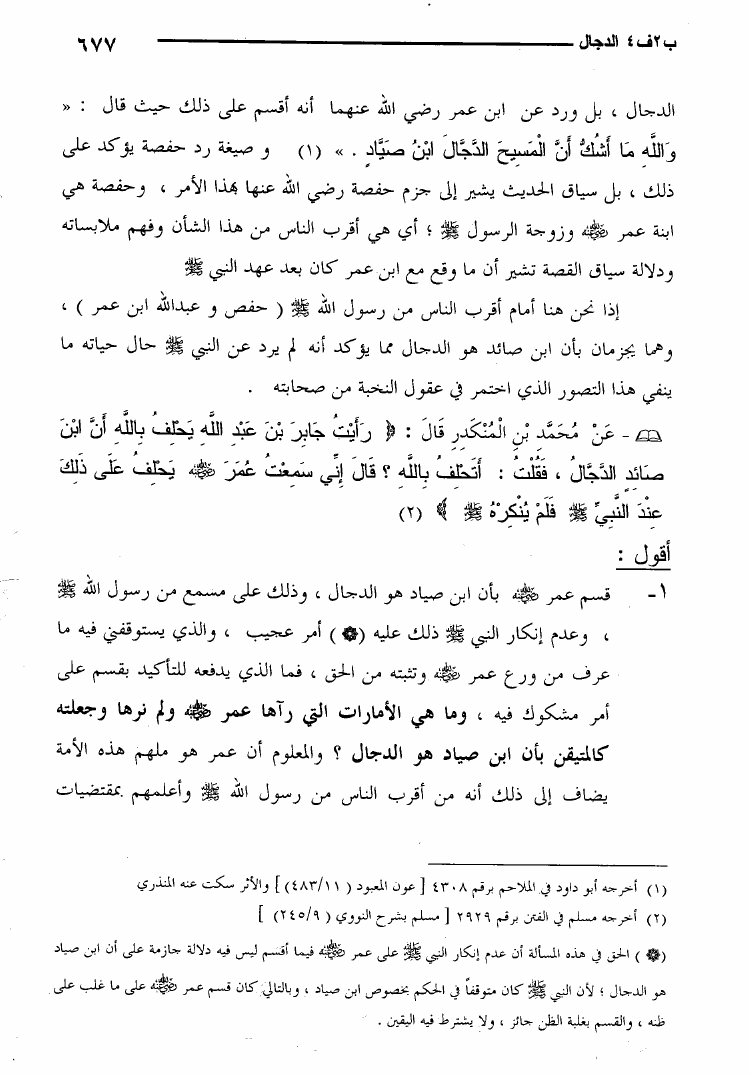 ب٢ف٤ الدجال ٦٧٧
الدجال ، بل ورد عن ابن عمر رضي الله عنهما أنه أقسم على ذلك حيث قال : «
وَاللَّهِ مَا أَشُكُّ أَنَّ الْمَسِيحَ الدَّجَّالَ ابْنُ صَيَّادٍ . » (١) و صيغة رد حفصة يؤكد على
ذلك ، بل سياق الحديث يشير إلى جزم حفصة رضي الله عنها بهذا الأمر ، وحفصة هي
ابنة عمر ﷺ وزوجة الرسول ﷺ ؛ أي هي أقرب الناس من هذا الشأن وفهم ملابساته
ودلالة سياق القصة تشير أن ما وقع مع ابن عمر كان بعد عهد النبي ﷺ
إذا نحن هنا أمام أقرب الناس من رسول الله ﷺ ( حفص و عبدالله ابن عمر ) ،
وهما يجزمان بأن ابن صائد هو الدجال مما يؤكد أنه لم يرد عن النبي ﷺ حال حياته ما
ينفي هذا التصور الذي اختمر في عقول النخبة من صحابته .
- عَنْ مُحَمَّدِ بْنِ الْمُنْكَدِرِ قَالَ : ﴿ رَأَيْتُ جَابِرَ بْنَ عَبْدِ اللَّهِ يَحْلِفُ بِاللَّهِ أَنَّ ابْنَ
صَائِدٍ الدَّجَّالُ ، فَقُلْتُ : أَتَحْلِفُ بِاللَّهِ ؟ قَالَ إِنِّي سَمِعْتُ عُمَرَ رضي الله عنه يَحْلِفُ عَلَى ذَلِكَ
عِنْدَ النَّبِيِّ ﷺ فَلَمْ يُنْكِرْهُ ﷺ ﴾ (٢)
أقول :
١- قسم عمر رضي الله عنه بأن ابن صياد هو الدجال ، وذلك على مسمع من رسول الله ﷺ
، وعدم إنكار النبي ﷺ ذلك عليه (❁) أمر عجيب ، والذي يستوقفني فيه ما
عرف من ورع عمر رضي الله عنه وتثبته من الحق ، فما الذي يدفعه للتأكيد بقسم على
أمر مشكوك فيه ، وما هي الأمارات التي رآها عمر رضي الله عنه ولم نرها وجعلته
كالمتيقن بأن ابن صياد هو الدجال ؟ والمعلوم أن عمر هو ملهم هذه الأمة
يضاف إلى ذلك أنه من أقرب الناس من رسول الله ﷺ وأعلمهم بمقتضيات
(١) أخرجه أبو داود في الملاحم برقم ٤٣٠٨ [ عون المعبود ( ٤٨٣/١١) ] والأثر سكت عنه المنذري
(٢) أخرجه مسلم في الفتن برقم ٢٩٢٩ [ مسلم بشرح النووي ( ٢٤٥/٩) ]
(❁) الحق في هذه المسألة أن عدم إنكار النبي ﷺ على عمر رضي الله عنه فيما أقسم ليس فيه دلالة جازمة على أن ابن صياد
هو الدجال ؛ لأن النبي ﷺ كان متوقفاً في الحكم بخصوص ابن صياد ، وبالتالي كان قسم عمر رضي الله عنه على ما غلب على
ظنه ، والقسم بغلبة الظن جائز ، ولا يشترط فيه اليقين .